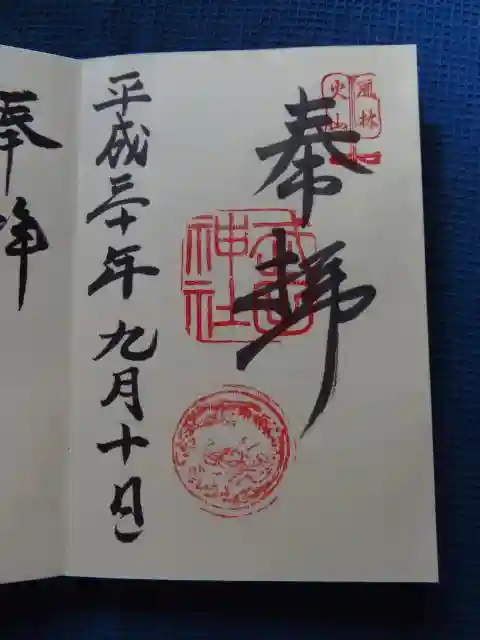 風林
火山
奉拝
武田
神社
平成三十年九月十日
奉拝